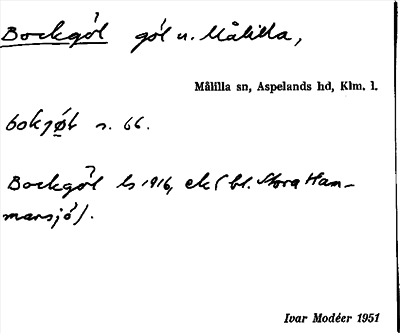 Bockgöl göl u. Målilla,
Målilla sn, Aspelands hd, Klm. l.
s. 66.
Bockgöl ls 1916, ek (bl. Stora Ham-
marsjö).
Ivar Modéer 1951